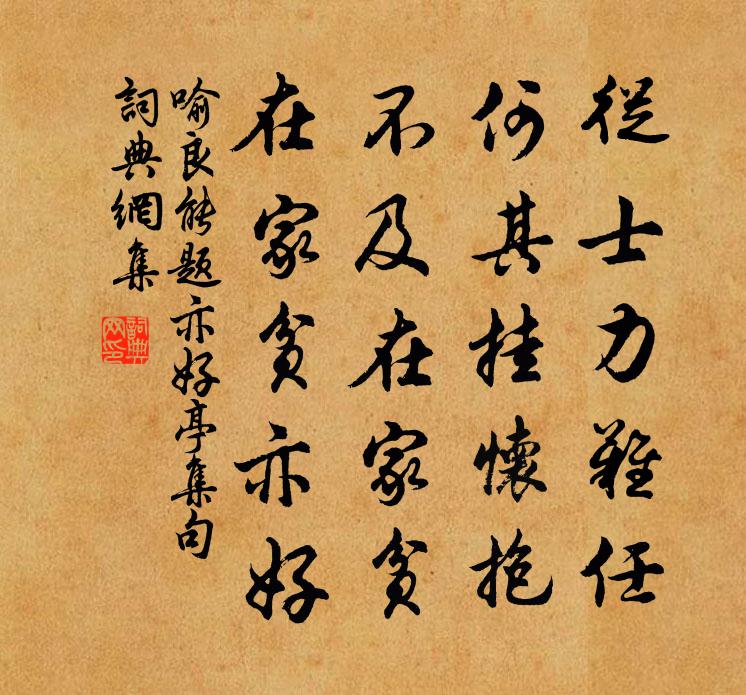 從士力難任
何其挂懷抱
不及在家貧
在家貧亦好
喻良能題亦好亭集句
詞典網集
詞典網印